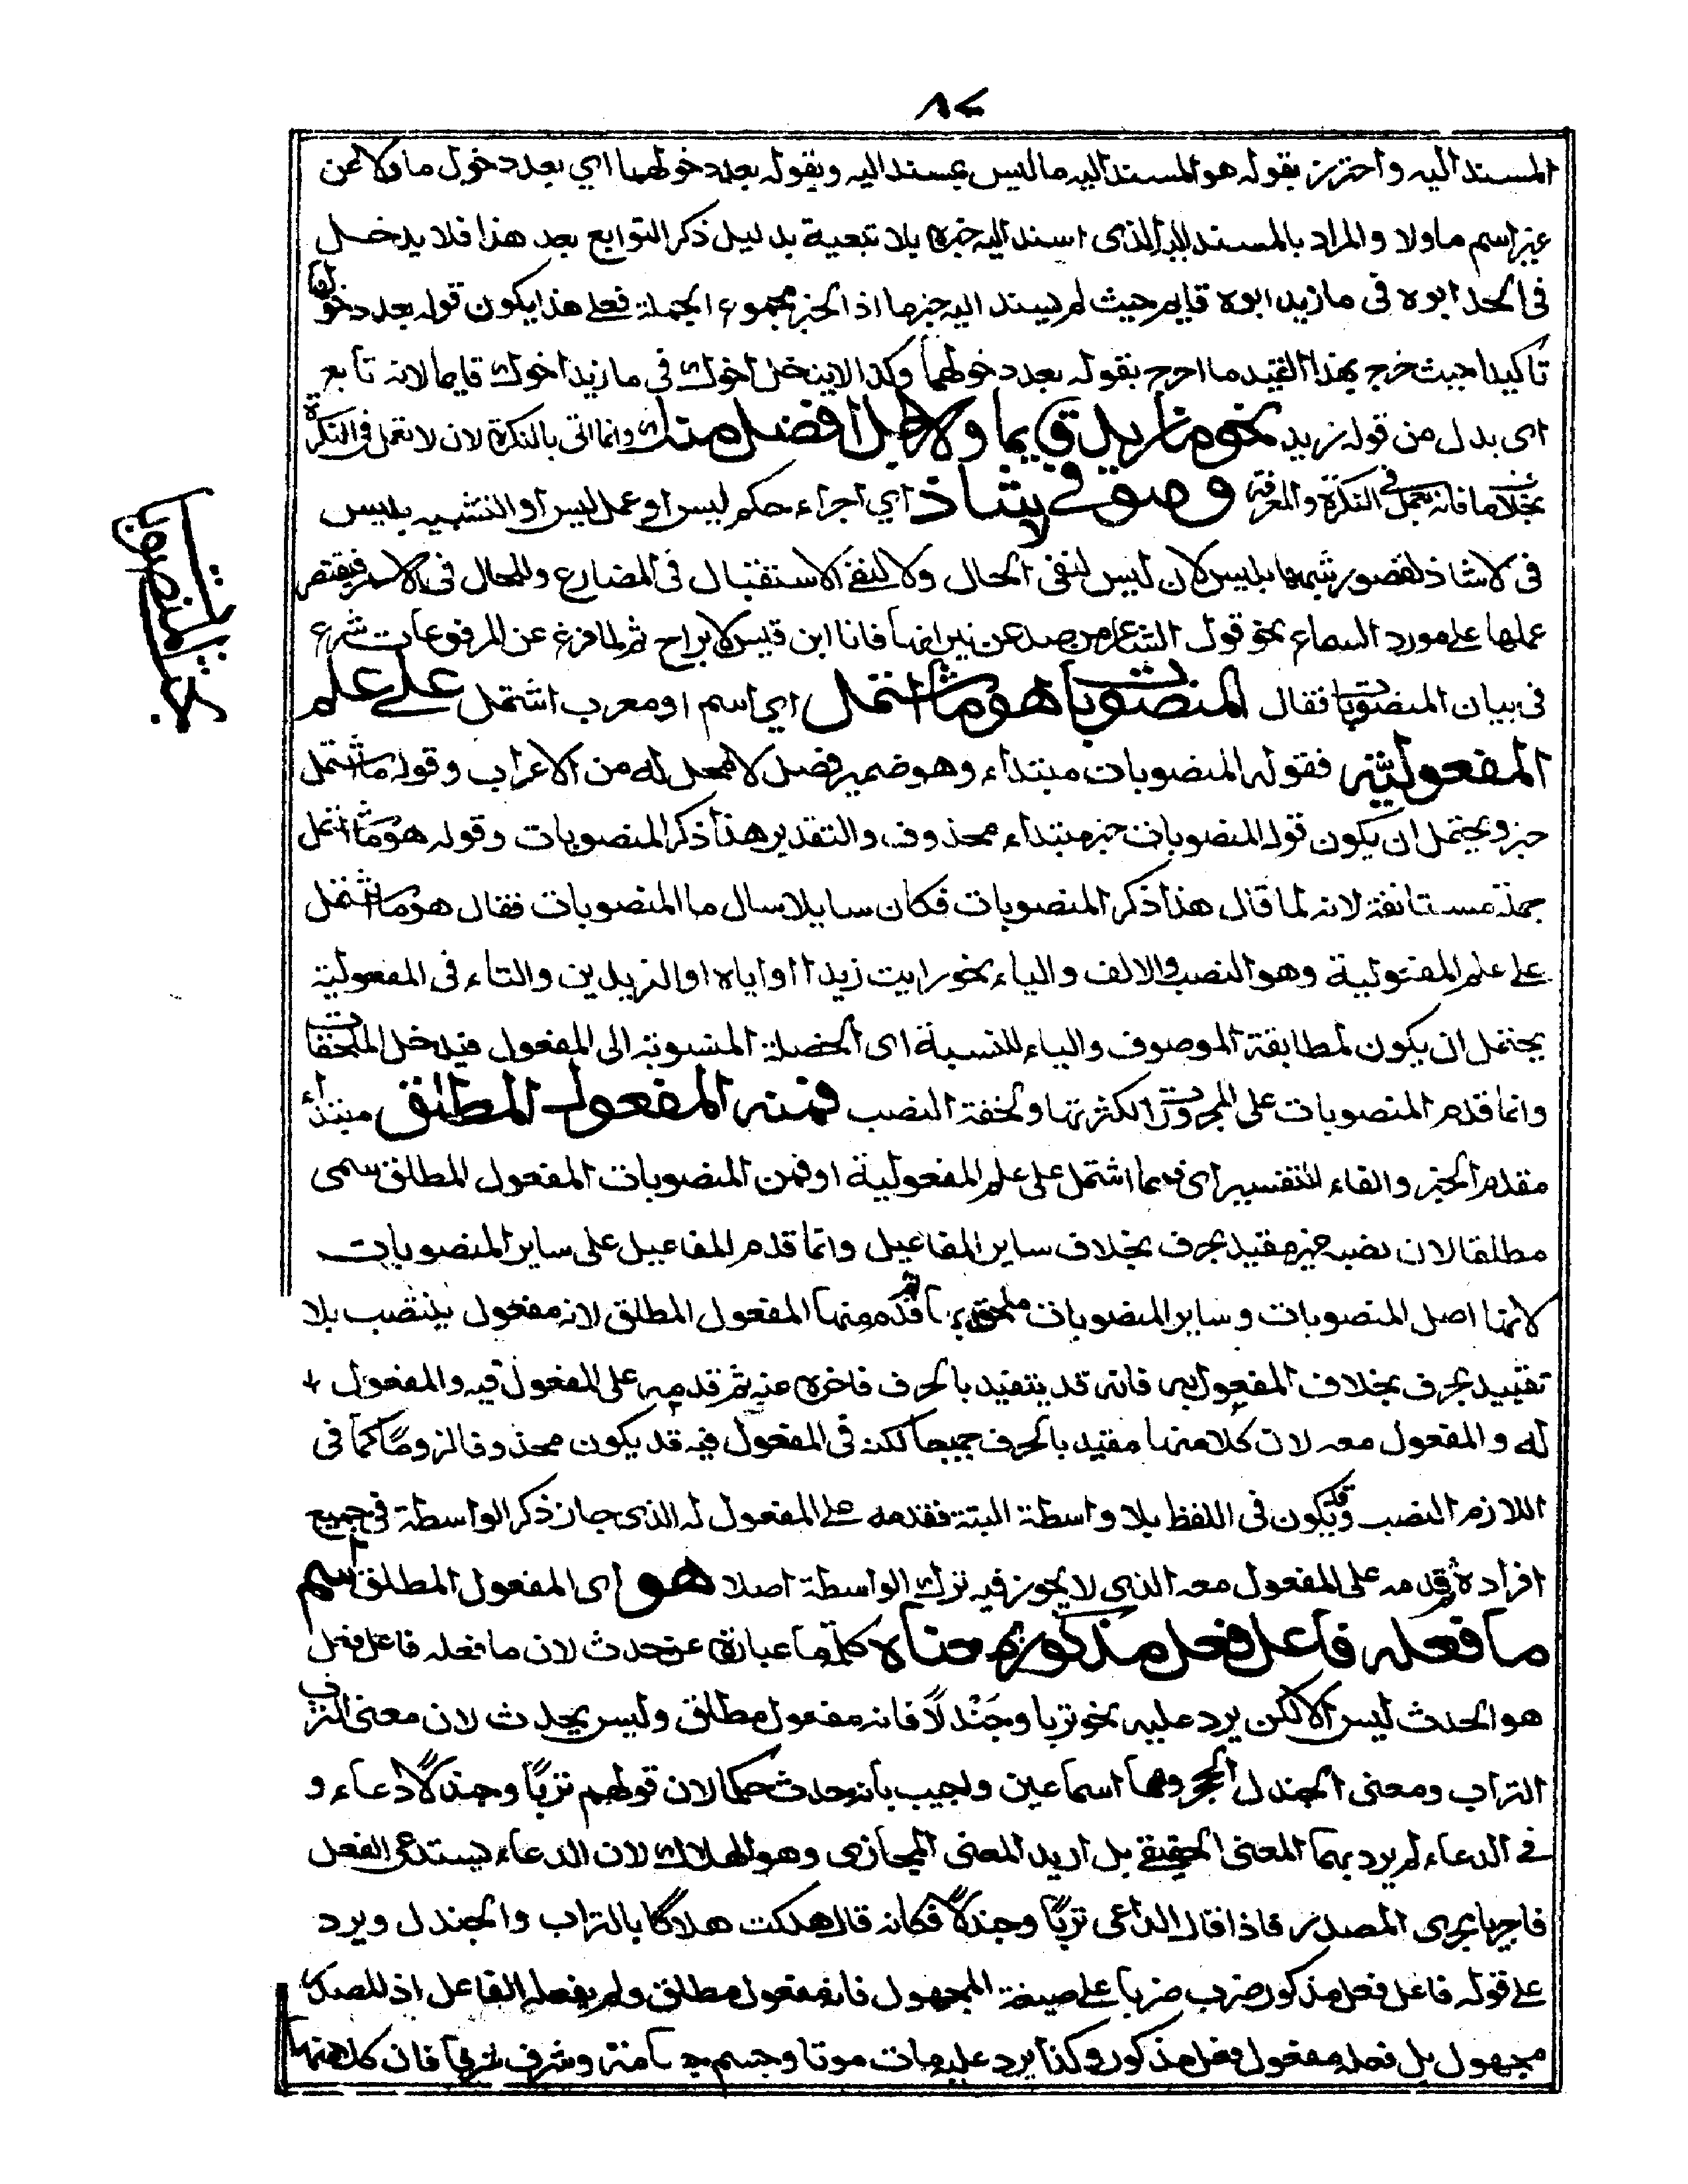 ٨٢
المسند اليه واحترز بقوله هو المسند اليه ما ليس بمسند اليه وبقوله بعد دخولهما اي بعد دخول ما ولا عن
غير اسم ما ولا والمراد بالمسند اليه الذى اسند اليه خبره بلا تبعية بدليل ذكر التوابع بعد هذا فلا يدخل
فى الحد ابوه فى ما زيد ابوه قايم حيث لم يسند اليه خبرها اذ الخبر مجموع الجملة فعلى هذا يكون قوله بعد دخولها
تاكيدا حيث خرج بهذا القيد ما اخرج بقوله بعد دخولهما وكذا لا يدخل اخوك فى ما زيد اخوك قايما لانه تابع
اى بدل من قوله زيد نحو ما زيد قايما ولا رجل افضل منك وانما اتى بالنكرة لان لا تعمل فى النكرة
بخلاف ما فانه تعمل فى النكرة والمعرفة وهو فى لا شاذ اي اجراء حكم ليس او عمل ليس او التشبيه بليس
فى لا شاذ لقصور شبهها بليس لان ليس لنفى الحال ولا لنفى الاستقبال فى المضارع وللحال فى الاسم فيقتصر
عملها على مورد السماع نحو قول الشاعر من صد عن نيرانها فانا ابن قيس لا براح ثم لما فرغ عن المرفوعات شرع
فى بيان المنصوبات فقال المنصوبات هو ما اشتمل اي اسم او معرب اشتمل على علم
المفعولية فقوله المنصوبات مبتداء وهو ضمير فصل لا محل له من الاعراب وقوله ما اشتمل
خبر ويحتمل ان يكون قوله المنصوبات خبر مبتداء محذوف والتقدير هذا ذكر المنصوبات وقوله هو ما اشتمل
جملة مستانفة لانه لما قال هذا ذكر المنصوبات فكان سايلا سال ما المنصوبات فقال هو ما اشتمل
على علم المفعولية وهو النصب والالف والياء نحو رايت زيدا او اياه او الزيدين والتاء فى المفعولية
يحتمل ان يكون لمطابقة الموصوف والياء للنسبة اى الخصلة المنسوبة الى المفعول فيدخل الملحقات
وانما قدم المنصوبات على المجرورات لكثرتها ولخفة النصب فمنه المفعول المطلق مبتداء
مقدم الخبر والفاء للتفسير اى فمما اشتمل على علم المفعولية او فمن المنصوبات المفعول المطلق سمى
مطلقا لان نصبه غير مقيد بحرف بخلاف ساير المفاعيل وانما قدم المفاعيل على ساير المنصوبات
لانها اصل المنصوبات وساير المنصوبات ملحق بها ثم قدم منها المفعول المطلق لانه مفعول ينتصب بلا
تقييد بحرف بخلاف المفعول به فانه قد يتقيد بالحرف فاخره عنه ثم قدمه على المفعول فيه والمفعول
له والمفعول معه لان كلا منها مقيد بالحرف جميعا لكنه فى المفعول فيه قد يكون محذوفا لزوما كما فى
اللازم النصب وقد يكون فى اللفظ بلا واسطة البتة فقدمه على المفعول له الذى جاز ذكر الواسطة فى جميع
افراده ثم قدمه على المفعول معه الذى لا يجوز فيه ترك الواسطة اصلا هو اى المفعول المطلق اسم
ما فعله فاعل فعل مذكور بمعناه كلمة ما عبارة عن حدث لان ما فعله فاعل فعل
هو الحدث ليس الا لكن يرد عليه نحو تربا وجَنْدلًا فانه مفعول مطلق وليس بحدث لان معنى الترب
التراب ومعنى الجندل الحجر وهما اسما عين واجيب بانه حدث حكما لان قولهم تربًا وجندلًا دعاء و
فى الدعاء لم يرد بهما المعنى الحقيقى بل اريد المعنى المجازى وهو الهلاك لان الدعاء يستدعى الفعل
فاجريا مجرى المصدر فاذا قال الداعى تربًا وجندلًا فكانه قال هلكت هلاكا بالتراب والجندل ويرد
على قوله فاعل فعل مذكور ضرب ضربا على صيغة المجهول فانه مفعول مطلق ولم يفعله الفاعل اذ للمصدر
مجهول بل فعله مفعول فعل مذكور وكذا يرد عليه مات موتا وجسم جسامة وشرف شرفا فان كلا منها
بحث المنصوبات